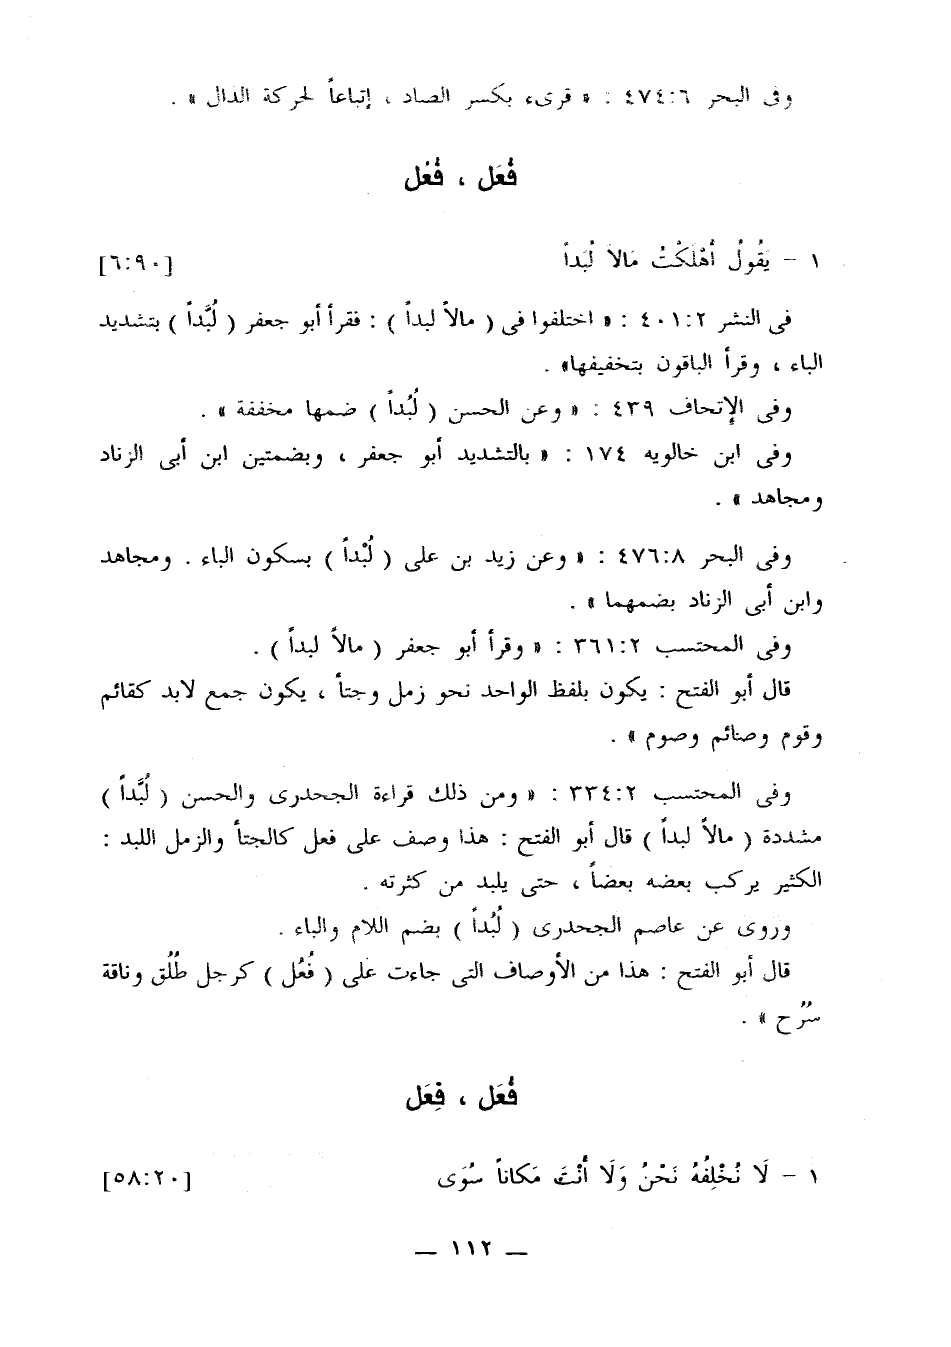 وفى البحر ٤٧٤:٦ : « قرىء بكسر الصاد ، إتباعاً لحركة الدال » .
فُعَل ، فُعْل
١ – يَقُولُ أَهْلَكْتُ مَالاً لُبَداً [٦:٩٠]
فى النشر ٤٠١:٢ : « اختلفوا فى ( مالاً لبداً ) : فقرأ أبو جعفر ( لُبَّداً ) بتشديد
الباء ، وقرأ الباقون بتخفيفها» .
وفى الإتحاف ٤٣٩ : « وعن الحسن ( لُبُداً ) ضمها مخففة » .
وفى ابن خالويه ١٧٤ : « بالتشديد أبو جعفر ، وبضمتين ابن أبى الزناد
ومجاهد » .
وفى البحر ٤٧٦:٨ : « وعن زيد بن على ( لُبْداً ) بسكون الباء . ومجاهد
وابن أبى الزناد بضمهما » .
وفى المحتسب ٣٦١:٢ : « وقرأ أبو جعفر ( مالاً لبداً ) .
قال أبو الفتح : يكون بلفظ الواحد نحو زمل وجتأ ، يكون جمع لابد كقائم
وقوم وصائم وصوم » .
وفى المحتسب ٣٣٤:٢ : « ومن ذلك قراءة الجحدرى والحسن ( لُبَّداً )
مشددة ( مالاً لبداً ) قال أبو الفتح : هذا وصف على فعل كالجتأ والزمل اللبد :
الكثير يركب بعضه بعضاً ، حتى يلبد من كثرته .
وروى عن عاصم الجحدرى ( لُبُداً ) بضم اللام والباء .
قال أبو الفتح : هذا من الأوصاف التى جاءت على ( فُعُل ) كرجل طُلُق وناقة
سُرُح » .
فُعَل ، فِعَل
١ – لَا نُخْلِفُهُ نَحْنُ وَلَا أَنْتَ مَكاناً سُوَى [٥٨:٢٠]
— ١١٢ —